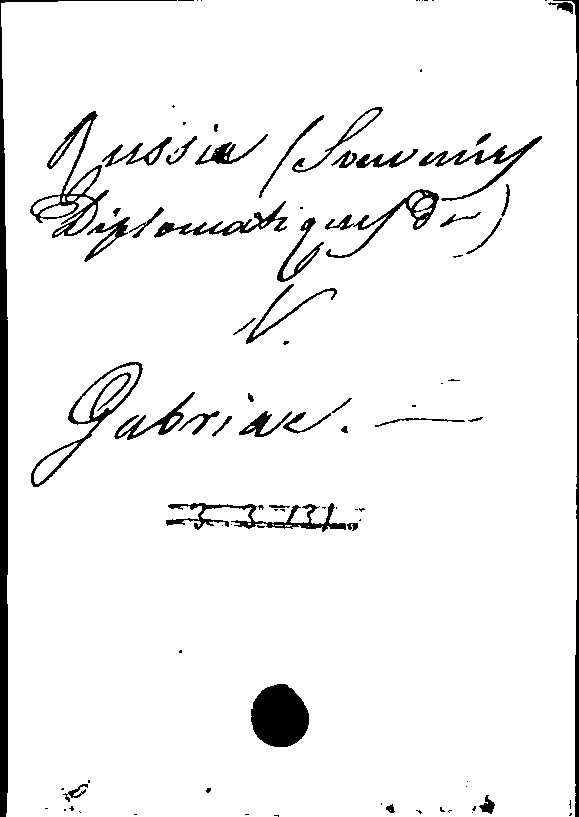 Russia (Souvenirs
Diplomatiques de)
V.
Gabriac. —